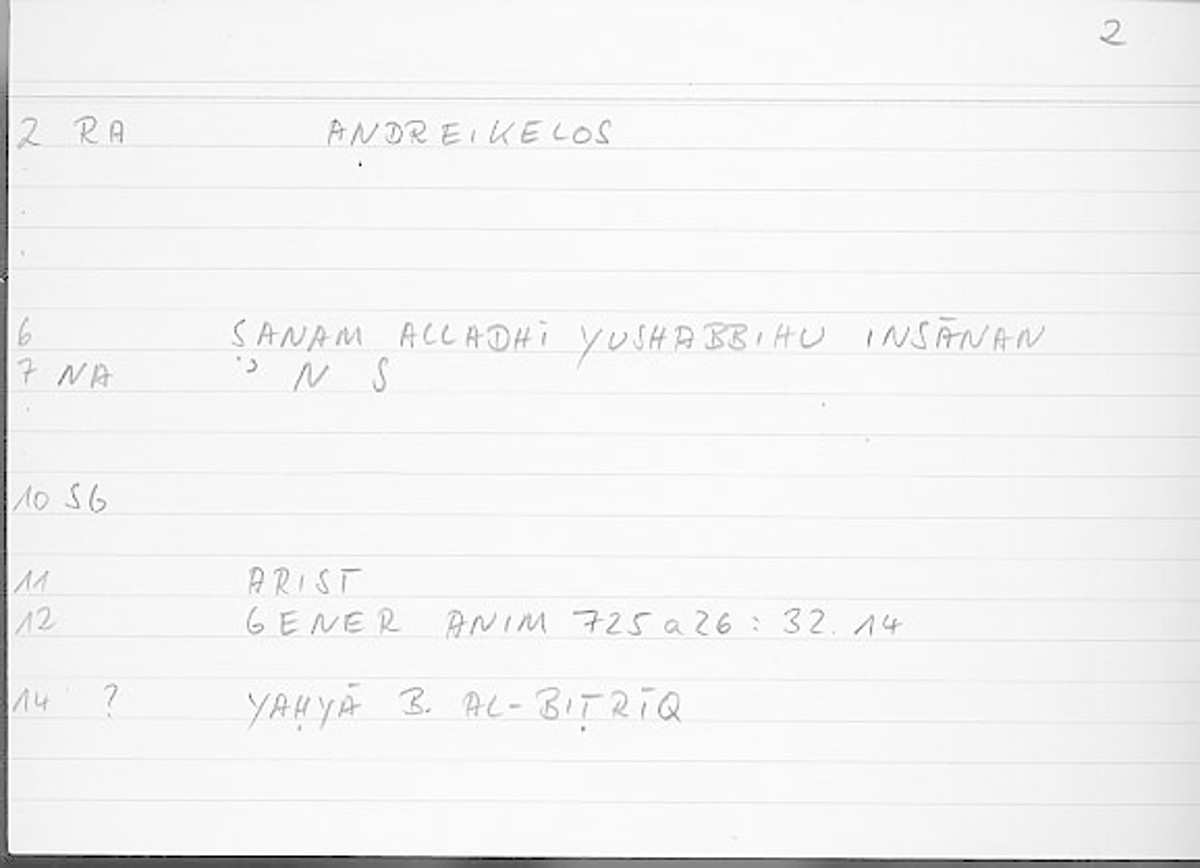 2
2 RA ANDREIKELOS
6 SANAM ALLADHĪ YUSHABBIHU INSĀNAN
7 NA N S
10 SG
11 ARIST
12 GENER ANIM 725a26: 32.14
14 ? YAḤYĀ B. AL-BIṬRĪQ